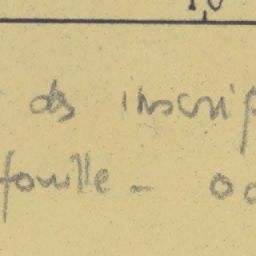 des inscrip
fouille - oc